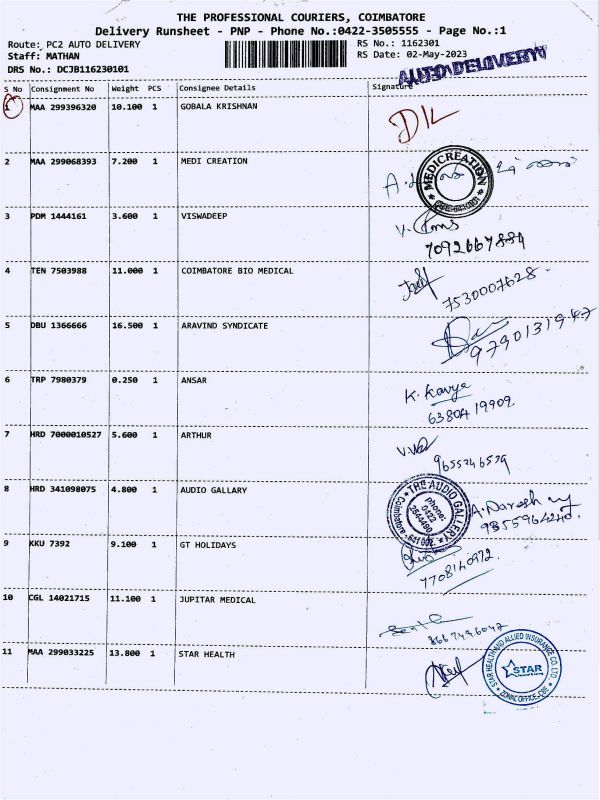 THE PROFESSIONAL COURIERS, COIMBATORE
Delivery Runsheet - PNP - Phone No.:0422-3505555 - Page No.:1
Route: PC2 AUTO DELIVERY RS No.: 1162301
Staff: MATHAN RS Date: 02-May-2023
DRS No.: DCJB116230101
AUTO DELIVERY
S No Consignment No Weight PCS Consignee Details Signature
1 MAA 299396320 10.100 1 GOBALA KRISHNAN
D/L
2 MAA 299068393 7.200 1 MEDI CREATION
MEDICREATION
3 PDM 1444161 3.600 1 VISWADEEP
7092667884
4 TEN 7503988 11.000 1 COIMBATORE BIO MEDICAL
7530007628
5 DBU 1366666 16.500 1 ARAVIND SYNDICATE
9790131947
6 TRP 7980379 0.250 1 ANSAR
K. Kavya
6380419909
7 HRD 7000010527 5.600 1 ARTHUR
9655246539
8 HRD 341098075 4.800 1 AUDIO GALLARY
THE AUDIO GALLERY
phone:
0422
2544480
Coimbatore - 641 002.
9 KKU 7392 9.100 1 GT HOLIDAYS
7708140972
10 CGL 14021715 11.100 1 JUPITAR MEDICAL
8667496047
11 MAA 299033225 13.800 1 STAR HEALTH
STAR HEALTH AND ALLIED INSURANCE CO. LTD.
STAR
ZONAL OFFICE, CBE